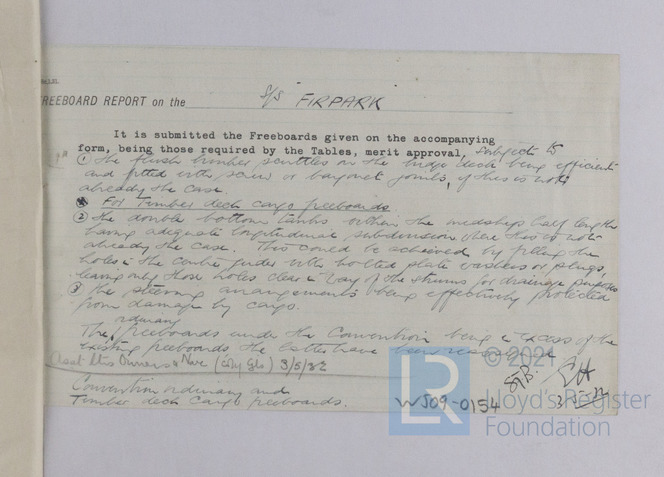 FREEBOARD REPORT on the S/S "FIRPARK"
It is submitted the Freeboards given on the accompanying
form, being those required by the Tables, merit approval, subject to
① The flush bunker scuttles on the bridge deck being efficient
and fitted with screw or bayonet joints, if this is not
already the case.
For Timber deck cargo freeboards
② The double bottom tanks within the midships half length
having adequate longitudinal subdivision where this is not
already the case. This could be achieved by fitting the
holes in the center girder with bolted plate washers or plugs,
leaving only those holes clear in way of the strums for drainage purposes
③ The steering arrangements being effectively protected
from damage by cargo.
ordinary
The freeboards under the Convention being in excess of the
existing freeboards, the latter have been reassigned
Owners & Nave (city Gls) 3/5/32
Convention ordinary and
Timber deck cargo freeboards.
W509-0154
© 2021
Lloyd's Register
Foundation
LR